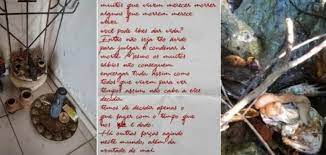 muitos que vivem merecer morrer
alguns que morrem merece
viver.
você pode lhes dar vida?
Então não seja tão ávido
para julgar e condenar à
morte. pois os muitos
sábios não conseguem
enxergar tudo. assim como
todos que vivem para ver
tempos assim. não cabe a eles
decidir.
temos de decidir apenas o
que fazer com o tempo que
nos é dado.
Há outras forças agindo
neste mundo, além da
vontade do mal.